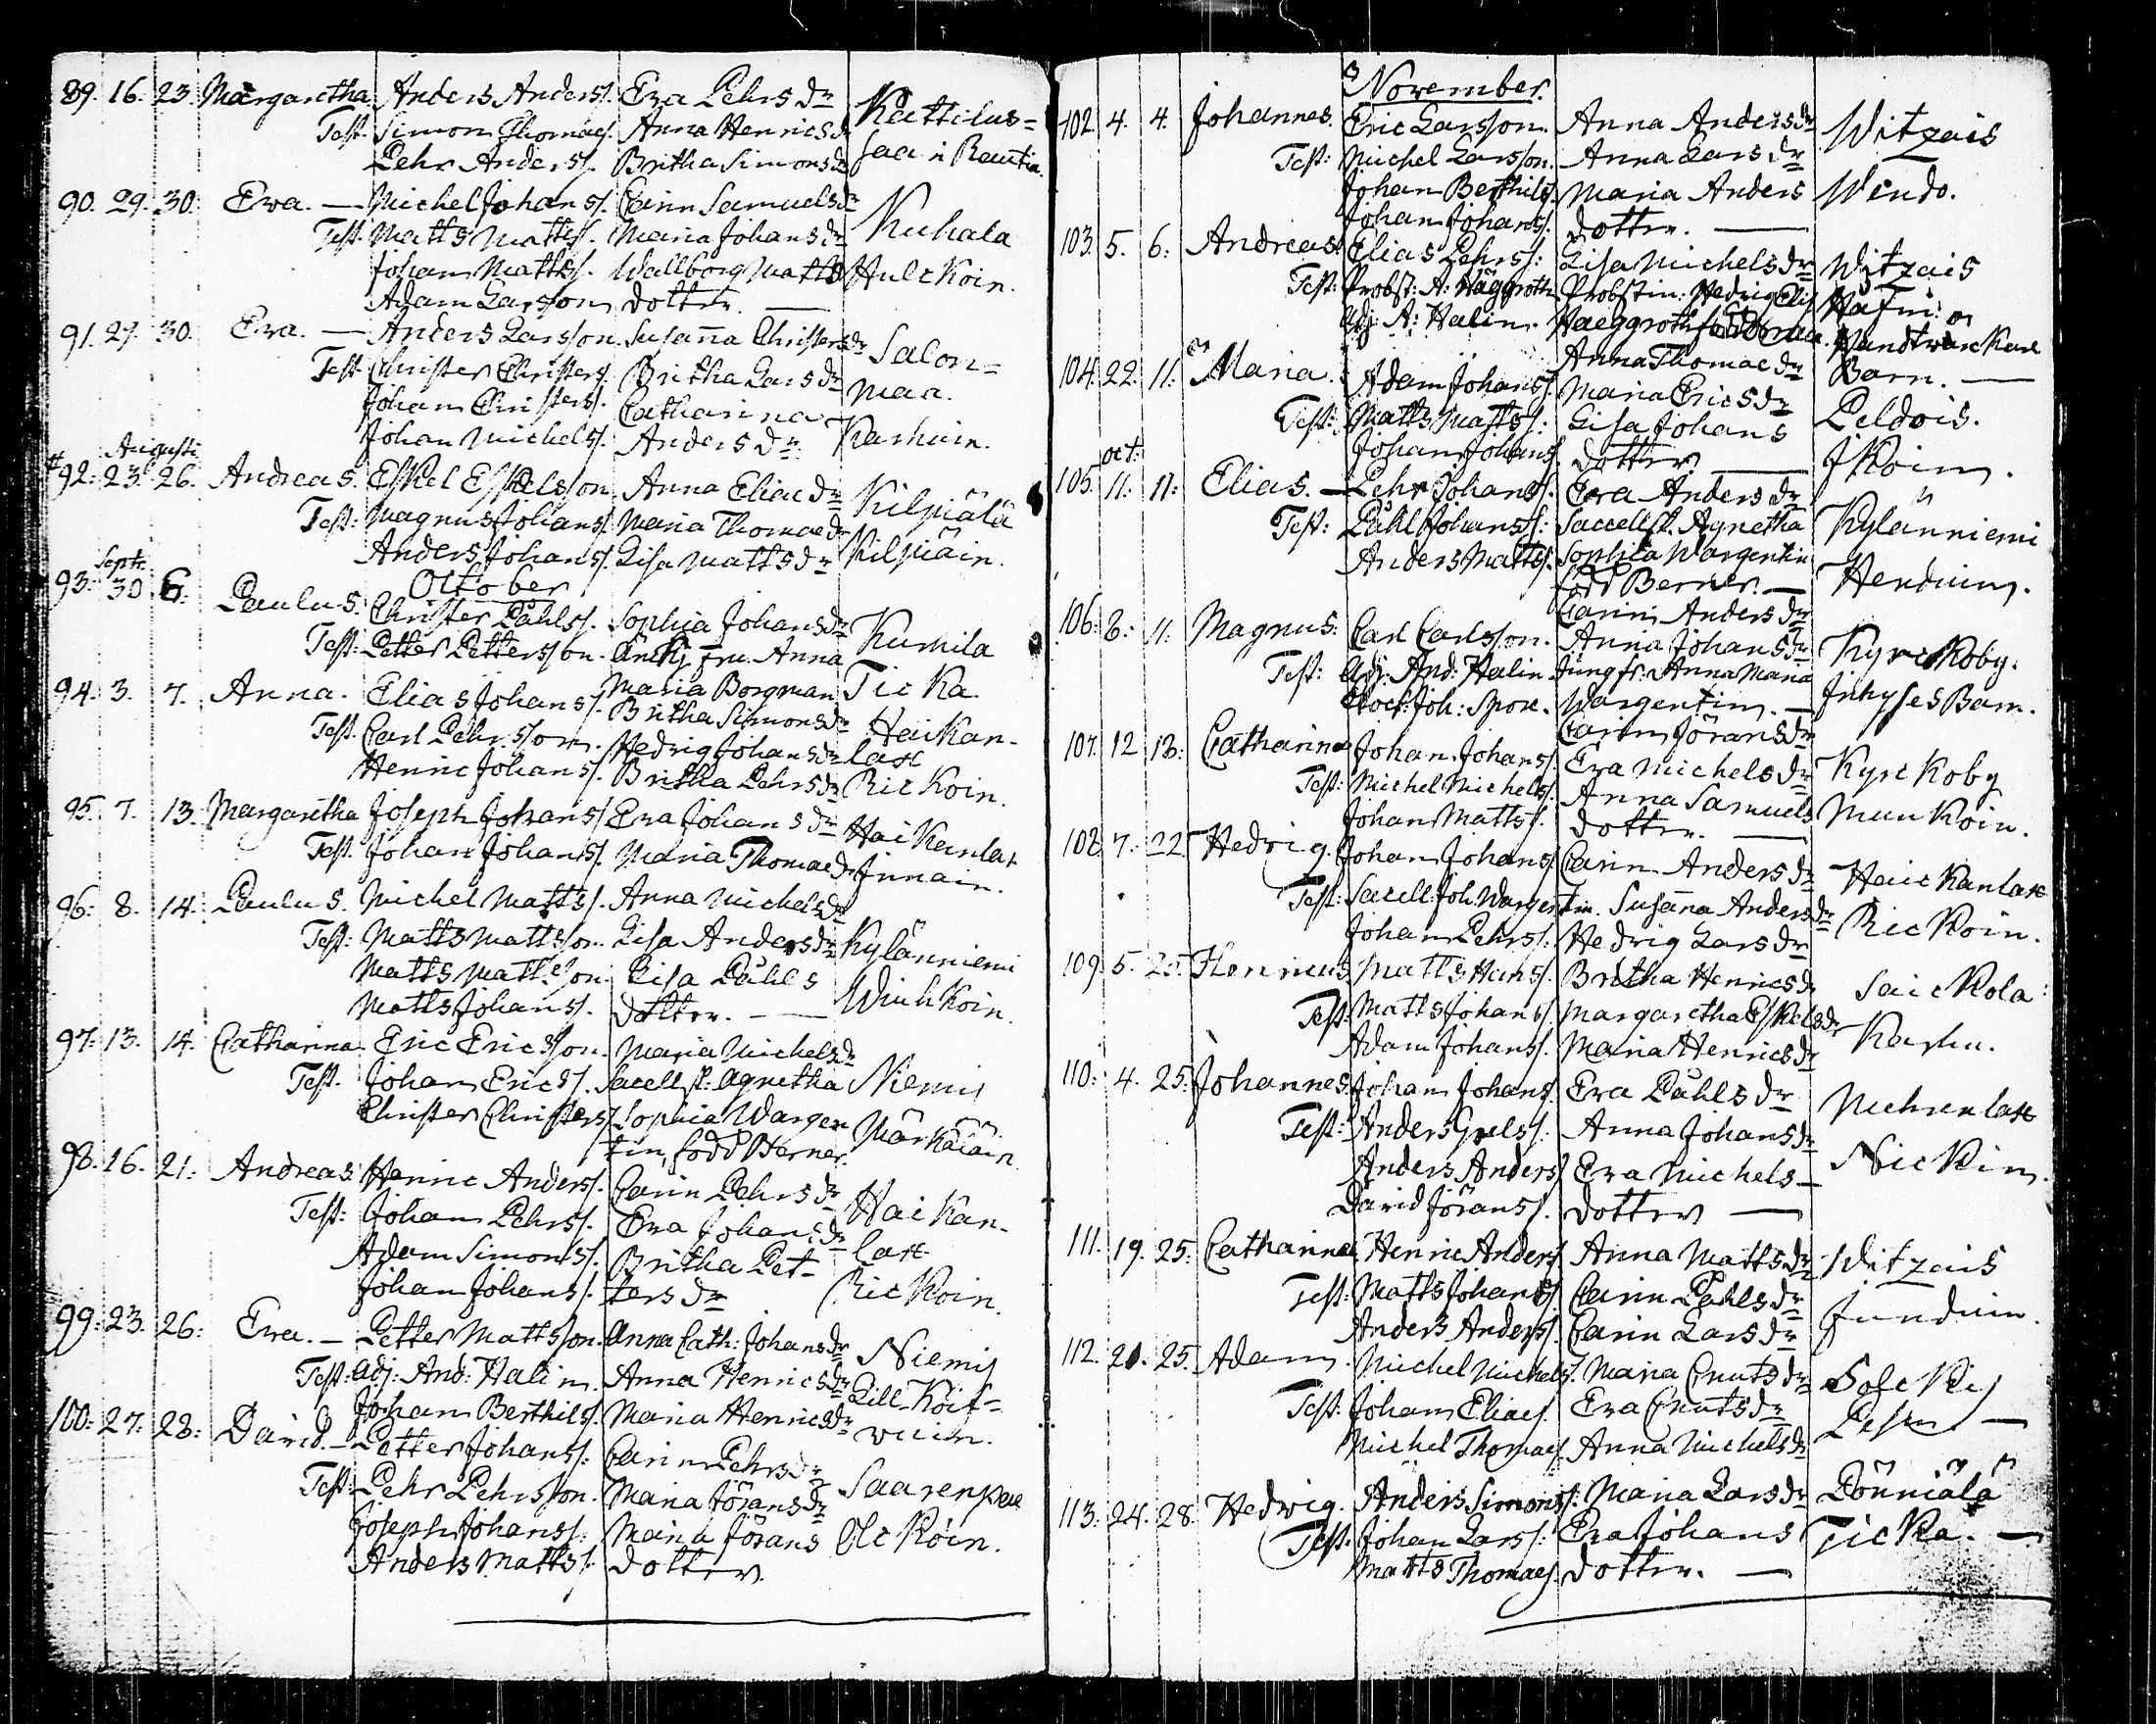 89. 16. 23. Margaretha. Anders Anderss. Eva Pehrs dr Kattilus=
Test. Simon Thomæs. Anna Henrics dr saa i Rautia.
Pehr Anderss. Britha Simons dr
90. 29. 30. Eva. — Michel Johanss. Carin Samuels dr Kuhala
Test. Matts Mattss. Maria Johans dr
Johan Mattss. Wallborg Matts Hulckoin.
Adam Larsson dotter. —
91. 29. 30. Eva. — Anders Larsson. Susanna Christers dr Salon=
Test. Christer Christers. Britha Lars dr maa.
Johan Christers. Catharina
Johan Michelss. Anders dr Karhuin.
Augusti
92. 23. 26. Andreas. Eskel Eskelsson Anna Eliæ dr Kilpiälä
Test: Magnus Johanss. Maria Thomæ dr
Anders Johanss. Lisa Matts dr Kilpiäin.
Sept. October
93. 30 6. Paulus. Christer Påhlss. Sophia Johans dr Kumila
Test: Petter Pettersson. Änkj fru Anna
Maria Borgman Ticka.
94. 3. 7. Anna. Elias Johanss. Britha Simons dr Haikan-
Test. Carl Pehrsson. Hedvig Johans dr laxt
Henric Johanss. Britha Pehrs dr Rickoin.
95. 7. 13. Margaretha Joseph Johanss. Eva Johans dr Haikanlax
Test. Johan Johanss. Maria Thomæ dr Innain.
96. 8. 14. Paulus. Michel Mattss. Anna Michels dr
Test: Matts Mattsson. Lisa Anders dr Kylänniemi
Matts Mattsson. Lisa Påhls
Matts Johanss. dotter. — Wiuhkoin.
97. 13. 14. Catharina. Eric Ericsson. Maria Michels dr
Test. Johan Ericss. Sacellsk: Agnetha Niemis
Christer Christers. Sophia Wargen
tin, född Berner. Märkäläin
98. 16. 21. Andreas. Henric Anderss. Carin Pehrs dr
Test: Johan Pehrss. Eva Johans dr Haikan-
Adam Simonss. Britha Pet- laxt
Johan Johanss. ters dr Rickoin.
99. 23. 26. Eva. — Petter Mattsson. Anna Cath: Johans dr Niemis
Test: Adj: And: Halin. Anna Henrics dr
Johan Berthilss. Maria Henrics dr Lill-Koif-
100. 27. 28. David. — Petter Johanss. Carin Pehrs dr
Test: Pehr Pehrsson. Maria Jörans dr Saarenpää
Joseph Johanss. Maria Jörans Olckoin.
Anders Mattss. dotter.
November.
102. 4. 4. Johannes. Eric Larsson. Anna Anders dr Witzais
Test: Michel Larsson. Anna Lars dr
Johan Berthilss. Maria Anders Windo.
Johan Johanss. dotter. —
103. 5. 6. Andreas. Elias Pehrss. Lisa Michels dr Witzais
Test: Probst: A: Häggroth Probstin: Hedvig Elis
Adj: A: Halin. Haeggroth
Anna Thomæ dr Barn. —
104. 22. 11. Maria. Adam Johanss. Maria Erics dr Peldois.
Test: Matts Mattss. Lisa Johans
Johan Johanss. dotter — Ikoin.
oct:
105. 11. 11. Elias. — Pehr Johanss. Eva Anders dr
Test: Påhl Johanss. Sacellsk. Agnetha Kylänniemi
Anders Mattss. Sophia Wargentin
född Berner. — Henduin.
Carin Anders dr
106. 8. 11. Magnus. Carl Carlsson. Anna Johans dr Kyrckoby.
Test: Adj: And: Halin Jungfr: Anna Maria
Klock: Joh: Spore. Wargentin. — Inhyses Barn.
Carin Jörans dr
107. 12 13. Catharina Johan Johanss. Eva Michels dr Kyrckoby
Test: Michel Michelss. Anna Samuels
Johan Mattss. dotter. — Munkoin.
108. 7. 22. Hedvig. Johan Johanss. Carin Anders dr Haickanlax
Test: Sacell: Joh. Wargentin. Susanna Anders dr
Johan Pehrss. Hedvig Lars dr Rickoin.
109. 5. 25. Henricus. Matts Hanss. Britha Henrics dr Saickola
Test. Matts Johanss. Margaretha Eskels dr
Adam Johanss. Maria Henrics dr Karhu.
110. 4. 25. Johannes. Johan Johanss. Eva Påhls dr
Test: Anders Anna Johans dr
Anders Anderss. Eva Michels —
David Jöranss. dotter —
111. 19. 25. Catharina. Henric Anderss. Anna Matts dr Witzais
Test: Matts Johanss. Carin Påhls dr
Anders Anderss. Carin Lars dr Junduin.
112. 21. 25. Adam. Michel Michelss. Maria Cnuts dr
Test: Johan Eliæs. Eva Cnuts dr
Michel Thomæs. Anna Michels dr
113. 24. 28. Hedvig. Anders Simonss. Maria Lars dr Pönniälä
Test. Johan Larss. Eva Johans Ticka. —
Matts Thomæs. dotter. —